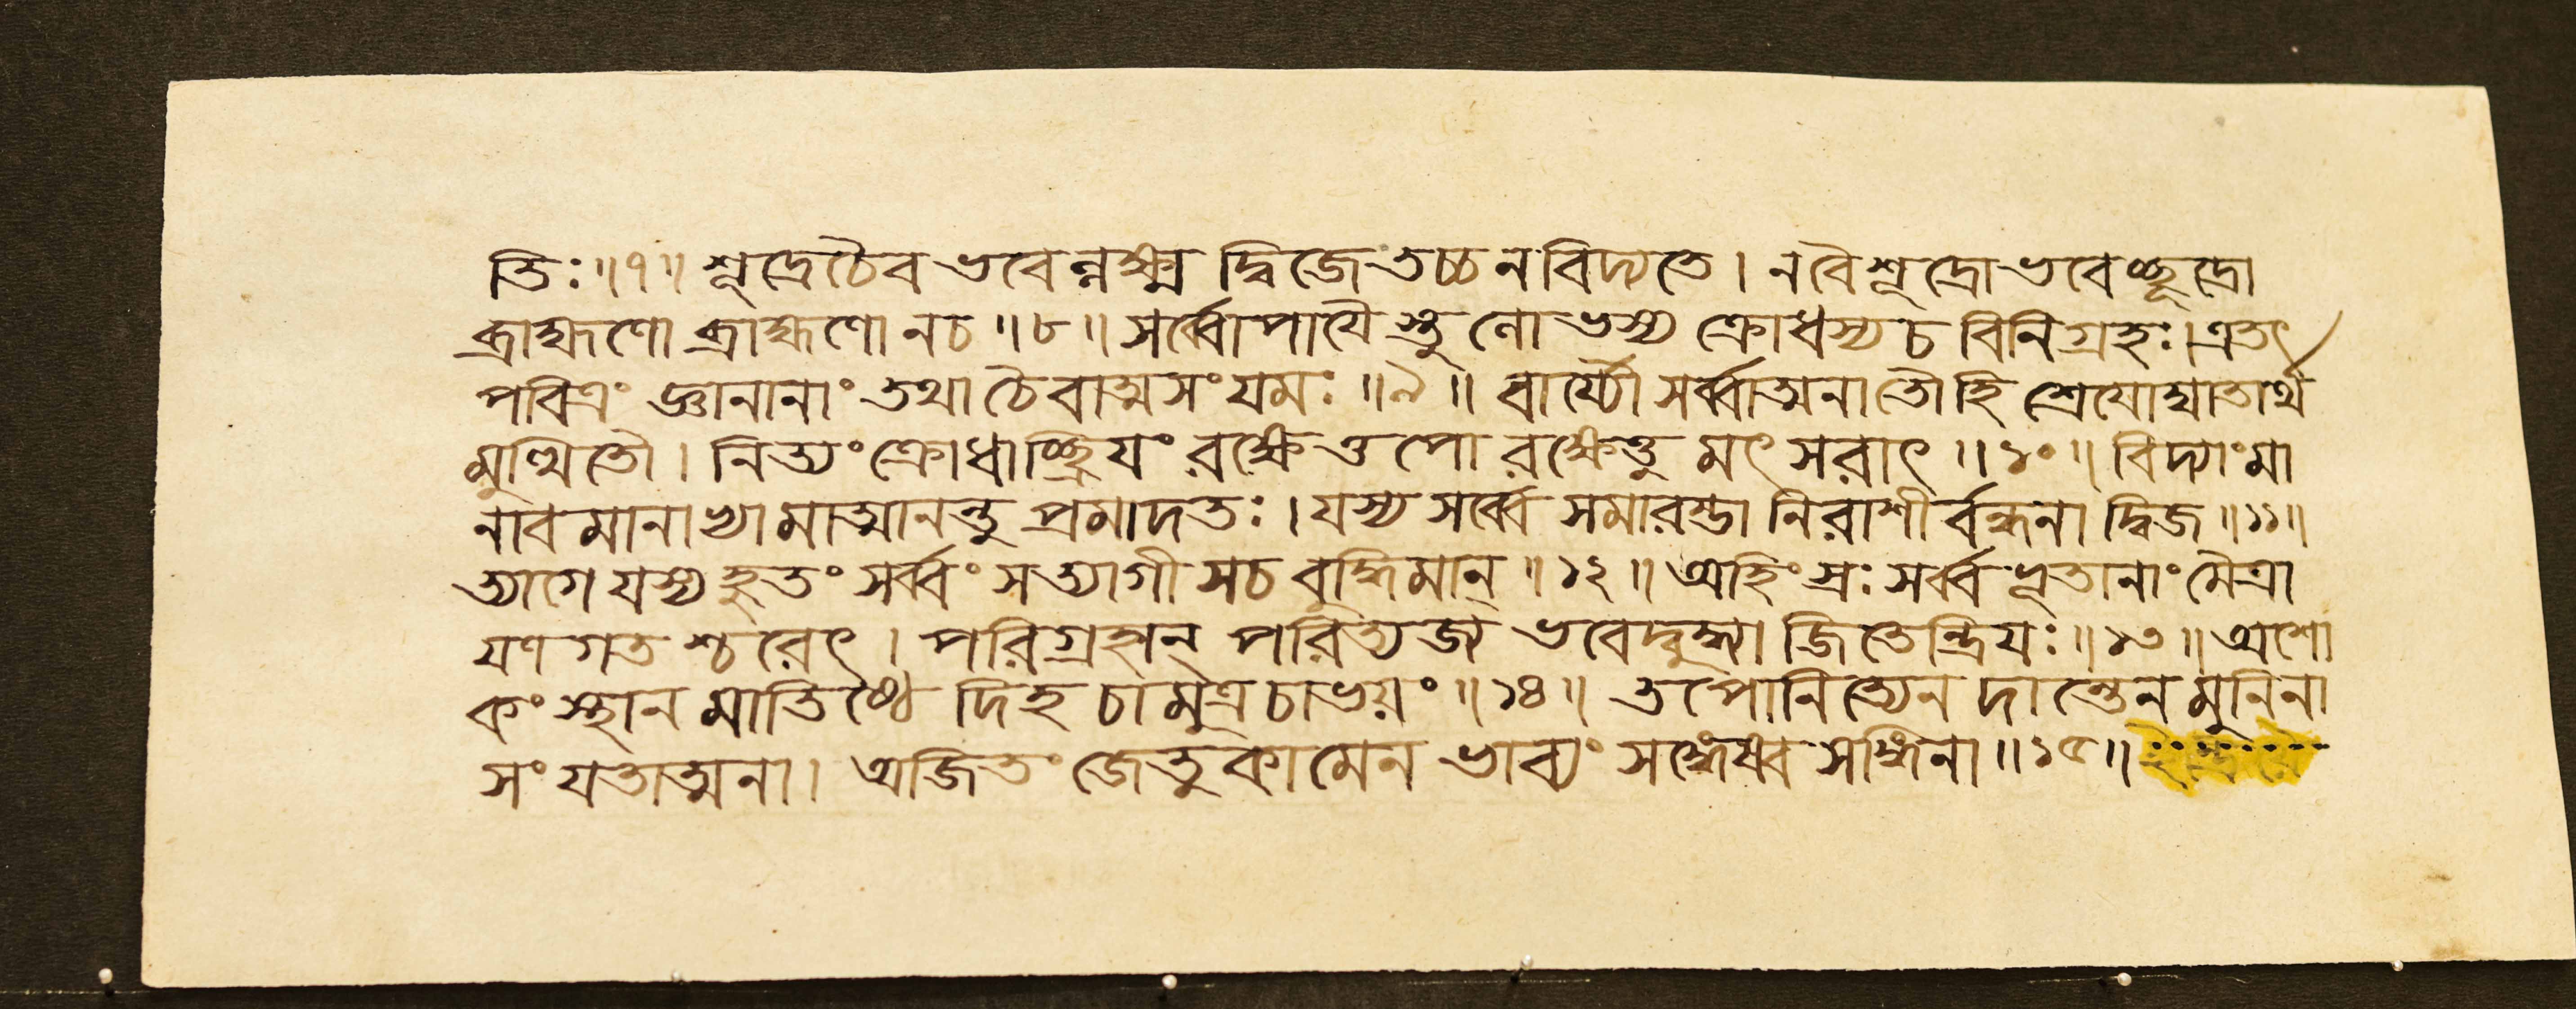 তিঃ॥৭॥ শূদ্রেচৈব ভবেন্নক্ষ্ম দ্বিজেতচ্চনবিদ্যতে। নবৈশূদ্রোভবেচ্ছূদ্রো
ব্রাহ্মণো ব্রাহ্মণোনচ॥৮॥ সর্ব্বোপাযৈস্তুলোভস্য ক্রোধস্য চ বিনিগ্রহঃ।এতৎ
পবিত্রং জ্ঞানানাং তথা চৈবাত্মসংযমঃ॥৯॥ বার্য্যৌ সর্ব্বাত্মনাতৌহি শ্রেযোঘাতার্থ
মুত্থিতৌ। নিত্যং ক্রোধাচ্ছ্রিযং রক্ষেত্তপো রক্ষেত্তু মৎসরাৎ॥১০॥ বিদ্যাংমা
নাবমানাভ্যামাত্মানন্তু প্রমাদতঃ। যস্য সর্ব্বে সমারম্ভা নিরাশীর্বন্ধনা দ্বিজ॥১১॥
ত্যাগে যস্য হুতং সর্ব্বং সত্যাগী সচ বুদ্ধিমান্॥১২॥ অহিংস্রঃ সর্ব্বভূতানাং মৈত্রা
যণগতশ্চরেৎ। পরিগ্রহান্ পরিত্যজ্য ভবেদ্বুদ্ধ্যা জিতেন্দ্রিযঃ॥১৩॥ অশো
কং স্থানমাতিষ্ঠেদিহ চামুত্র চাভয়ং॥১৪॥ তপোনিত্যেন দান্তেন মুনিনা
সংযতাত্মনা। অজিতং জেতুকামেন ভাব্যং সঙ্গেষ্বসঙ্গিনা॥১৫॥